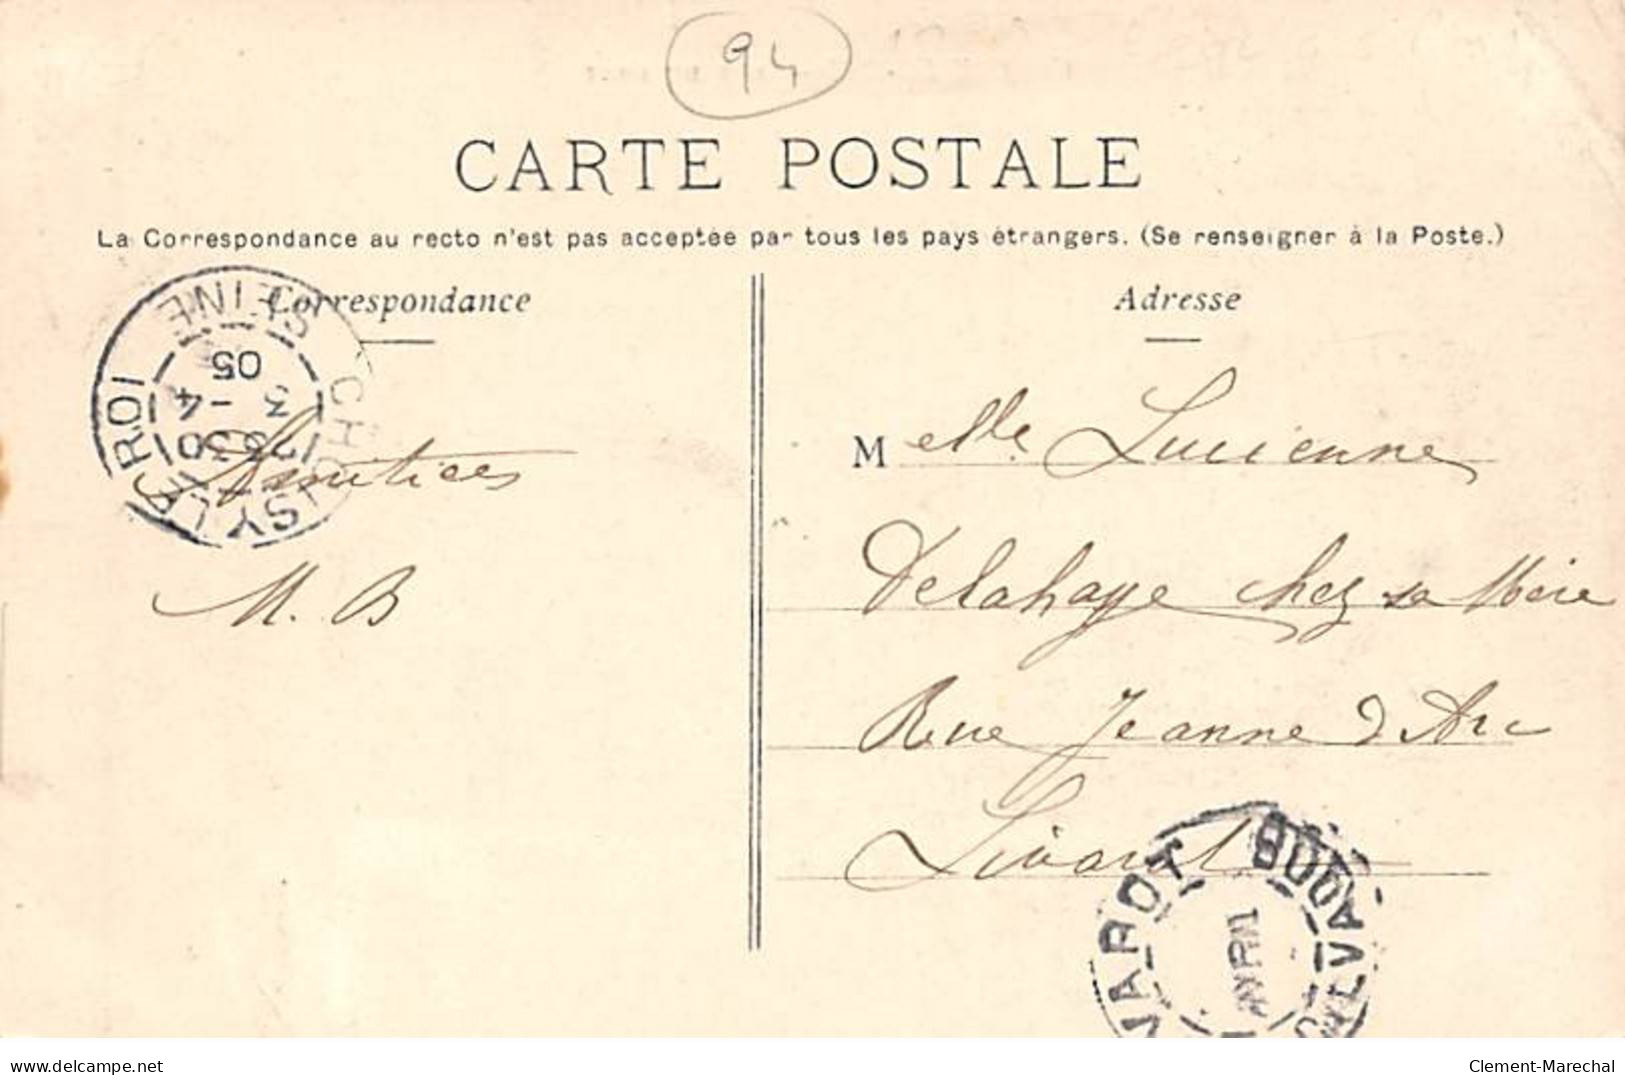 94
CARTE POSTALE
La Correspondance au recto n'est pas acceptée par tous les pays étrangers. (Se renseigner à la Poste.)
Correspondance
Adresse
CHOISY LE ROI
SEINE
3 - 4
05
Amitiées
M. B
Melle Lucienne
Delahaye chez sa Mère
Rue Jeanne d'Arc
Livarot
VAROT
CALVADOS
AVRIL
delcampe.net
Clement-Marechal